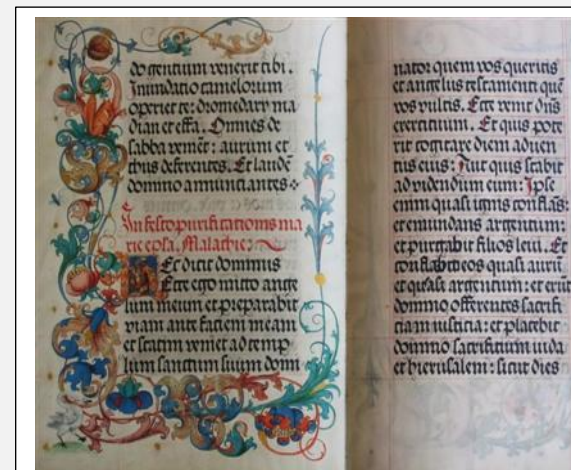 do gentium venerit tibi.
Inundatio camelorum
operiet te: dromedarÿ ma
dian et effa. Omnes de
sabba veniēt: aurum et
thus deferentes. Et laudē
domino annunciantes
In festo purificationis ma
rie epła. Malachie:
Ec dicit dominus
Ecce ego mitto ange
lum meum et preparabit
viam ante faciem meam
et statim veniet ad temp
lum sanctum suum domi
nator quem vos queritis
et angelus testamenti quē
vos vultis. Ecce venit dn̄s
exercituum. Et quis pote
rit cogitare diem aduen
tus eius: Aut quis stabit
ad videndum eum: Ipse
enim quasi ignis conflās:
et emundans argentum:
et purgabit filios leui. Et
conflabit eos quasi aurū
et quasi argentum: et erūt
domino offerentes sacrifi
cia in iusticia: et placebit
domino sacrificium iuda
et hierusalem: sicut dies